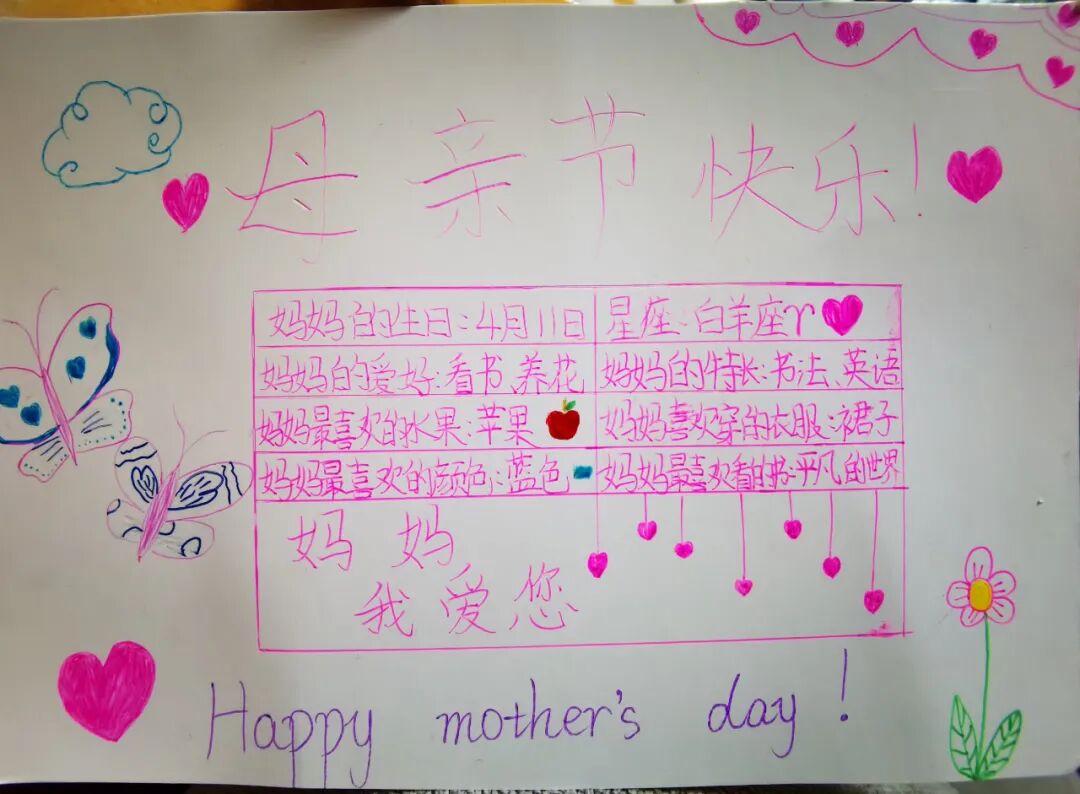 母亲节快乐!
妈妈的生日:4月11日 星座:白羊座♈
妈妈的爱好:看书、养花 妈妈的特长:书法、英语
妈妈最喜欢的水果:苹果 妈妈喜欢穿的衣服:裙子
妈妈最喜欢的颜色:蓝色 妈妈最喜欢看的书:平凡的世界
妈妈
我爱您
Happy mother's day!